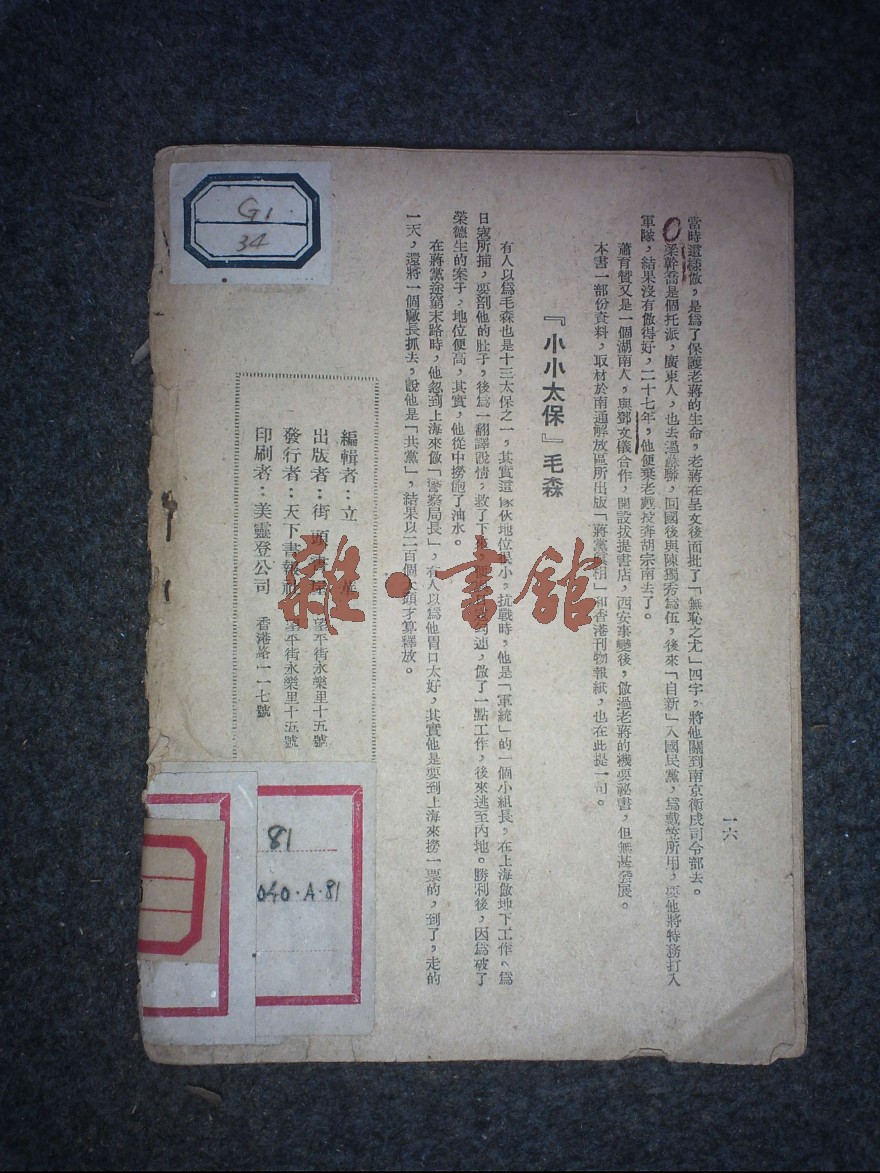 一六
當時這樣做，是爲了保護老蔣的生命，老蔣在呈文後面批了「無恥之尤」四字，將他關到南京衛戍司令部去。
梁幹喬是個托派，廣東人，也去過蘇聯，回國後與陳獨秀爲伍，後來「自新」入國民黨，爲戴笠所用，要他將特務打入
軍隊，結果沒有做得好，二十七年，他便棄老戴投奔胡宗南去了。
蕭育贊又是一個湖南人，與鄧文儀合作，開設拔提書店，西安事變後，做過老蔣的機要祕書，但無甚發展。
本書一部份資料，取材於南通解放區所出版「蔣黨真相」和香港刊物報紙，也在此提一句。
『小小太保』毛森
有人以爲毛森也是十三太保之一，其實這傢伙地位很小，抗戰時，他是「軍統」的一個小組長，在上海做地下工作，爲
日寇所捕，要剖他的肚子，後爲一翻譯說情，救了下來，勾連，做了一點工作，後來逃至內地。勝利後，因爲破了
榮德生的案子，地位便高，其實，他從中撈飽了油水。
在蔣黨途窮末路時，他忽到上海來做「警察局長」，有人以爲他胃口太好，其實他是要到上海來撈一票的，到了，走的
一天，還將一個廠長抓去，說他是「共黨」，結果以二百個大頭才算釋放。
編輯者：立
出版者：街頭書 望平街永樂里十五號
發行者：天下書報社 望平街永樂里十五號
印刷者：美靈登公司 香港路一一七號
G1
34
81
040·A·81
雜·書館